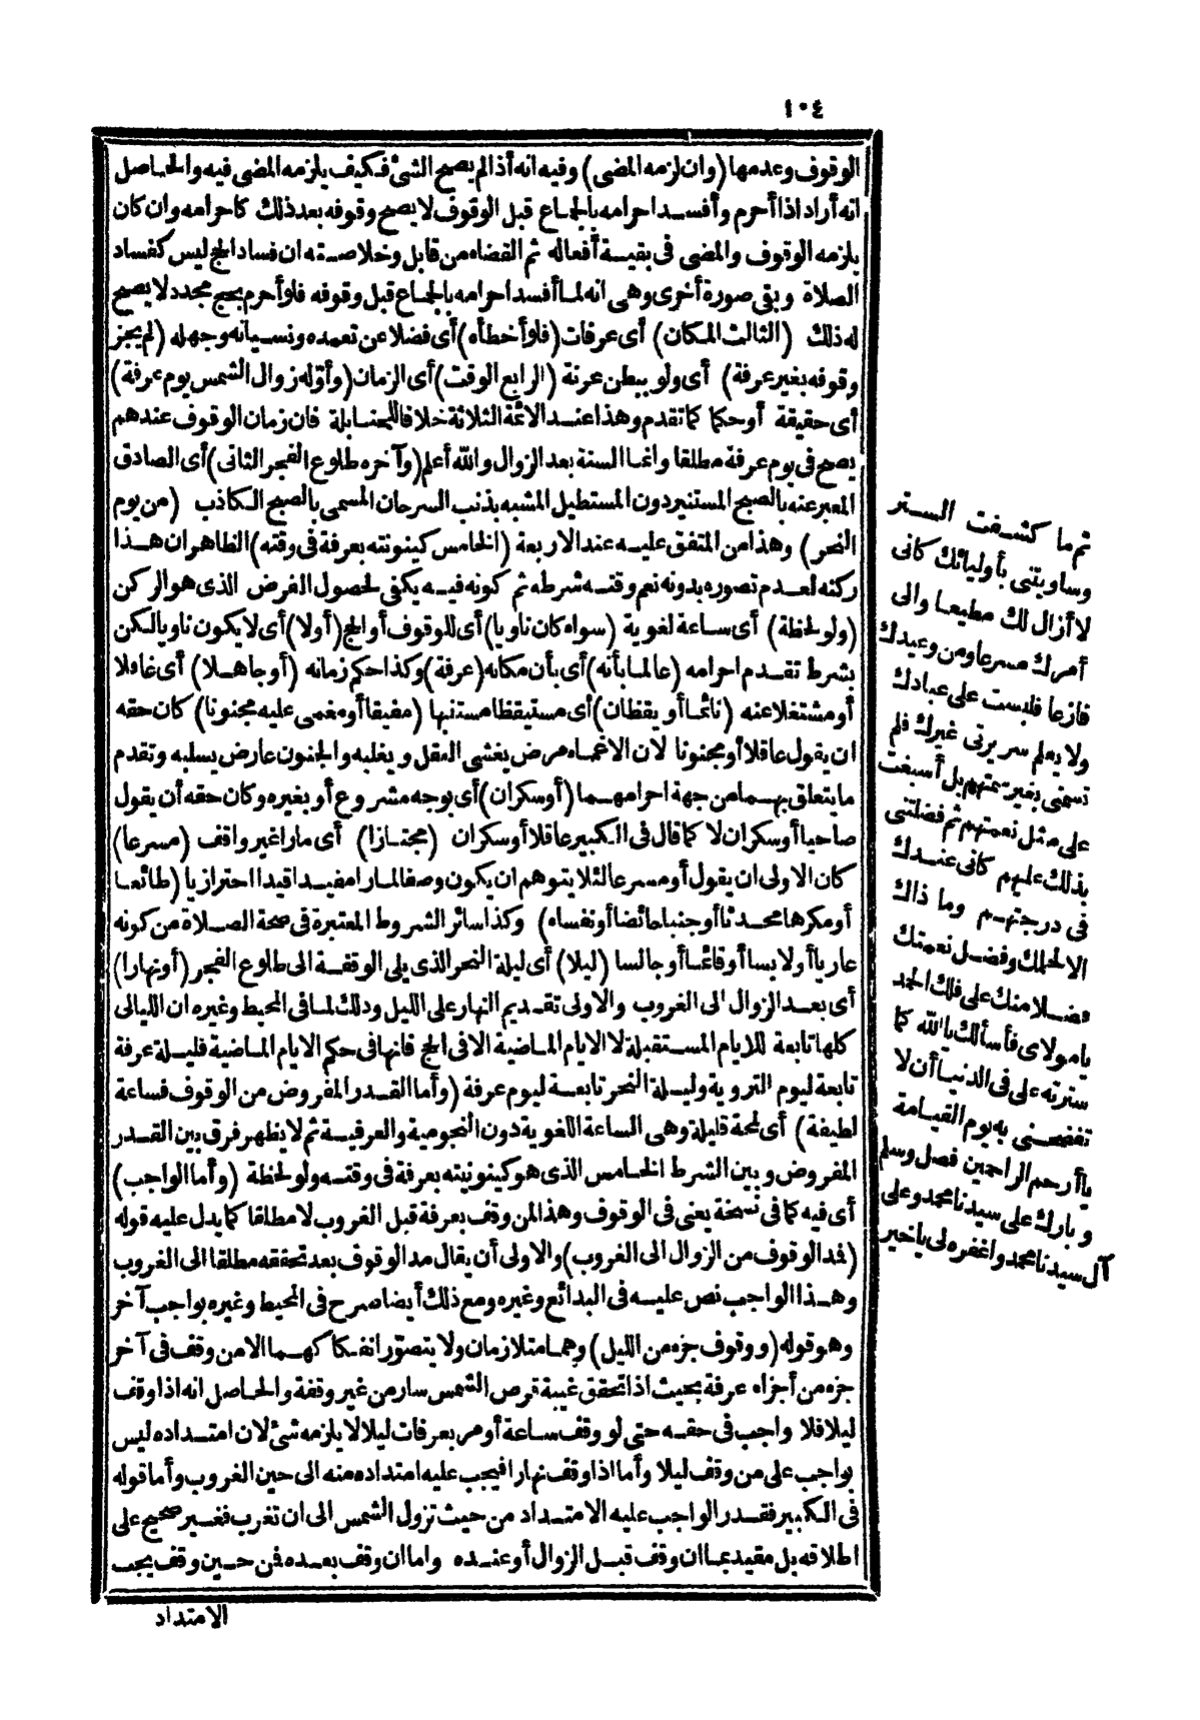 ١٠٤
الوقوف وعدمها (وان لزمه المضى) وفيه انه اذا لم يصح الشئ فكيف يلزمه المضى فيه والحاصل
انه أراد اذا أحرم وأفسد احرامه بالجماع قبل الوقوف لا يصح وقوفه بعد ذلك كاحرامه وان كان
يلزمه الوقوف والمضى فى بقية أفعاله ثم القضاء من قابل وخلاصته ان فساد الحج ليس كفساد
الصلاة وبقى صورة أخرى وهى انه لما أفسد احرامه بالجماع قبل وقوفه فلو أحرم بحج مجدد لا يصح
له ذلك (الثالث المكان) أى عرفات (فلو أخطأه) أى فضلا عن تعمده ونسيانه وجهله (لم يجز
وقوفه بغير عرفة) أى ولو ببطن عرنة (الرابع الوقت) أى الزمان (وأوّله زوال الشمس يوم عرفة)
أى حقيقة أو حكما كما تقدم وهذا عند الائمة الثلاثة خلافا للحنابلة فان زمان الوقوف عندهم
يصح فى يوم عرفة مطلقا وانما السنة بعد الزوال والله أعلم (وآخره طلوع الفجر الثانى) أى الصادق
المعبر عنه بالصبح المستنير دون المستطيل المشبه بذنب السرحان المسمى بالصبح الكاذب (من يوم
النحر) وهذا من المتفق عليه عند الاربعة (الخامس كينونته بعرفة فى وقته) الظاهر ان هذا
ركنه لعدم تصوره بدونه نعم وقته شرطه ثم كونه فيه يكفى لحصول الفرض الذى هو الركن
(ولو لحظة) أى ساعة لغوية (سواء كان ناويا) أى للوقوف أو الحج (أولا) أى لا يكون ناويا لكن
بشرط تقدم احرامه (عالما بأنه) أى بأن مكانه (عرفة) وكذا حكم زمانه (أو جاهلا) أى غافلا
أو مشتغلا عنه (نائما أو يقظان) أى مستيقظا مستنبها (مفيقا أو مغمى عليه مجنونا) كان حقه
ان يقول عاقلا أو مجنونا لان الاغماء مرض يغشى العقل ويغلبه والجنون عارض يسلبه وتقدم
ما يتعلق بهما من جهة احرامهما (أو سكران) أى بوجه مشروع أو بغيره وكان حقه أن يقول
صاحيا أو سكران لا كما قال فى الكبير عاقلا أو سكران (مجتازا) أى مارا غير واقف (مسرعا)
كان الاولى ان يقول أو مسرعا لئلا يتوهم ان يكون وصفا للمار مفيدا قيدا احترازيا (طائعا
أو مكرها محدثا أو جنبا حائضا أو نفساء) وكذا سائر الشروط المعتبرة فى صحة الصلاة من كونه
عاريا أو لابسا أو قائما أو جالسا (ليلا) أى ليلة النحر الذى يلى الوقفة الى طلوع الفجر (أو نهارا)
أى بعد الزوال الى الغروب والاولى تقديم النهار على الليل وذلك لما فى المحيط وغيره ان الليالى
كلها تابعة للايام المستقبلة لا الايام الماضية الا فى الحج فانها فى حكم الايام الماضية فليلة عرفة
تابعة ليوم التروية وليلة النحر تابعة ليوم عرفة (وأما القدر المفروض من الوقوف فساعة
لطيفة) أى لمحة قليلة وهى الساعة اللغوية دون النجومية والعرفية ثم لا يظهر فرق بين القدر
المفروض وبين الشرط الخامس الذى هو كينونيته بعرفة فى وقته ولو لحظة (وأما الواجب)
أى فيه كما فى نسخة يعنى فى الوقوف وهذا لمن وقف بعرفة قبل الغروب لا مطلقا كما يدل عليه قوله
(فمد الوقوف من الزوال الى الغروب) والاولى أن يقال مد الوقوف بعد تحققه مطلقا الى الغروب
وهذا الواجب نص عليه فى البدائع وغيره ومع ذلك أيضا صرح فى المحيط وغيره بواجب آخر
وهو قوله (ووقوف جزء من الليل) وهما متلازمان ولا يتصوّر انفكاكهما الا من وقف فى آخر
جزء من أجزاء عرفة بحيث اذا تحقق غيبة قرص الشمس سار من غير وقفة والحاصل انه اذا وقف
ليلا فلا واجب فى حقه حتى لو وقف ساعة أو مر بعرفات ليلا لا يلزمه شئ لان امتداده ليس
بواجب على من وقف ليلا وأما اذا وقف نهارا فيجب عليه امتداده منه الى حين الغروب وأما قوله
فى الكبير فقدر الواجب عليه الامتداد من حيث تزول الشمس الى ان تغرب فغير صحيح على
اطلاقه بل مقيد بما ان وقف قبل الزوال أو عنده واما ان وقف بعده فمن حين وقف يجب
الامتداد
ثم ما كشفت الستر
وساويتنى بأوليائك كانى
لا أزال لك مطيعا والى
أمرك مسرعا ومن وعيدك
فازعا فلبست على عبادك
ولا يعلم سريرتى غيرك فلم
تسمنى بغير سمتهم بل أسبغت
على مثل نعمتهم ثم فضلتنى
بذلك عليهم كانى عندك
فى درجتهم وما ذاك
الا لحلمك وفضل نعمتك
فضلا منك على فلك الحمد
يا مولاى فأسألك يا الله كما
سترته على فى الدنيا أن لا
تفضحنى به يوم القيامة
يا أرحم الراحمين فصل وسلم
وبارك على سيدنا محمد وعلى
آل سيدنا محمد واغفره لى يا خير